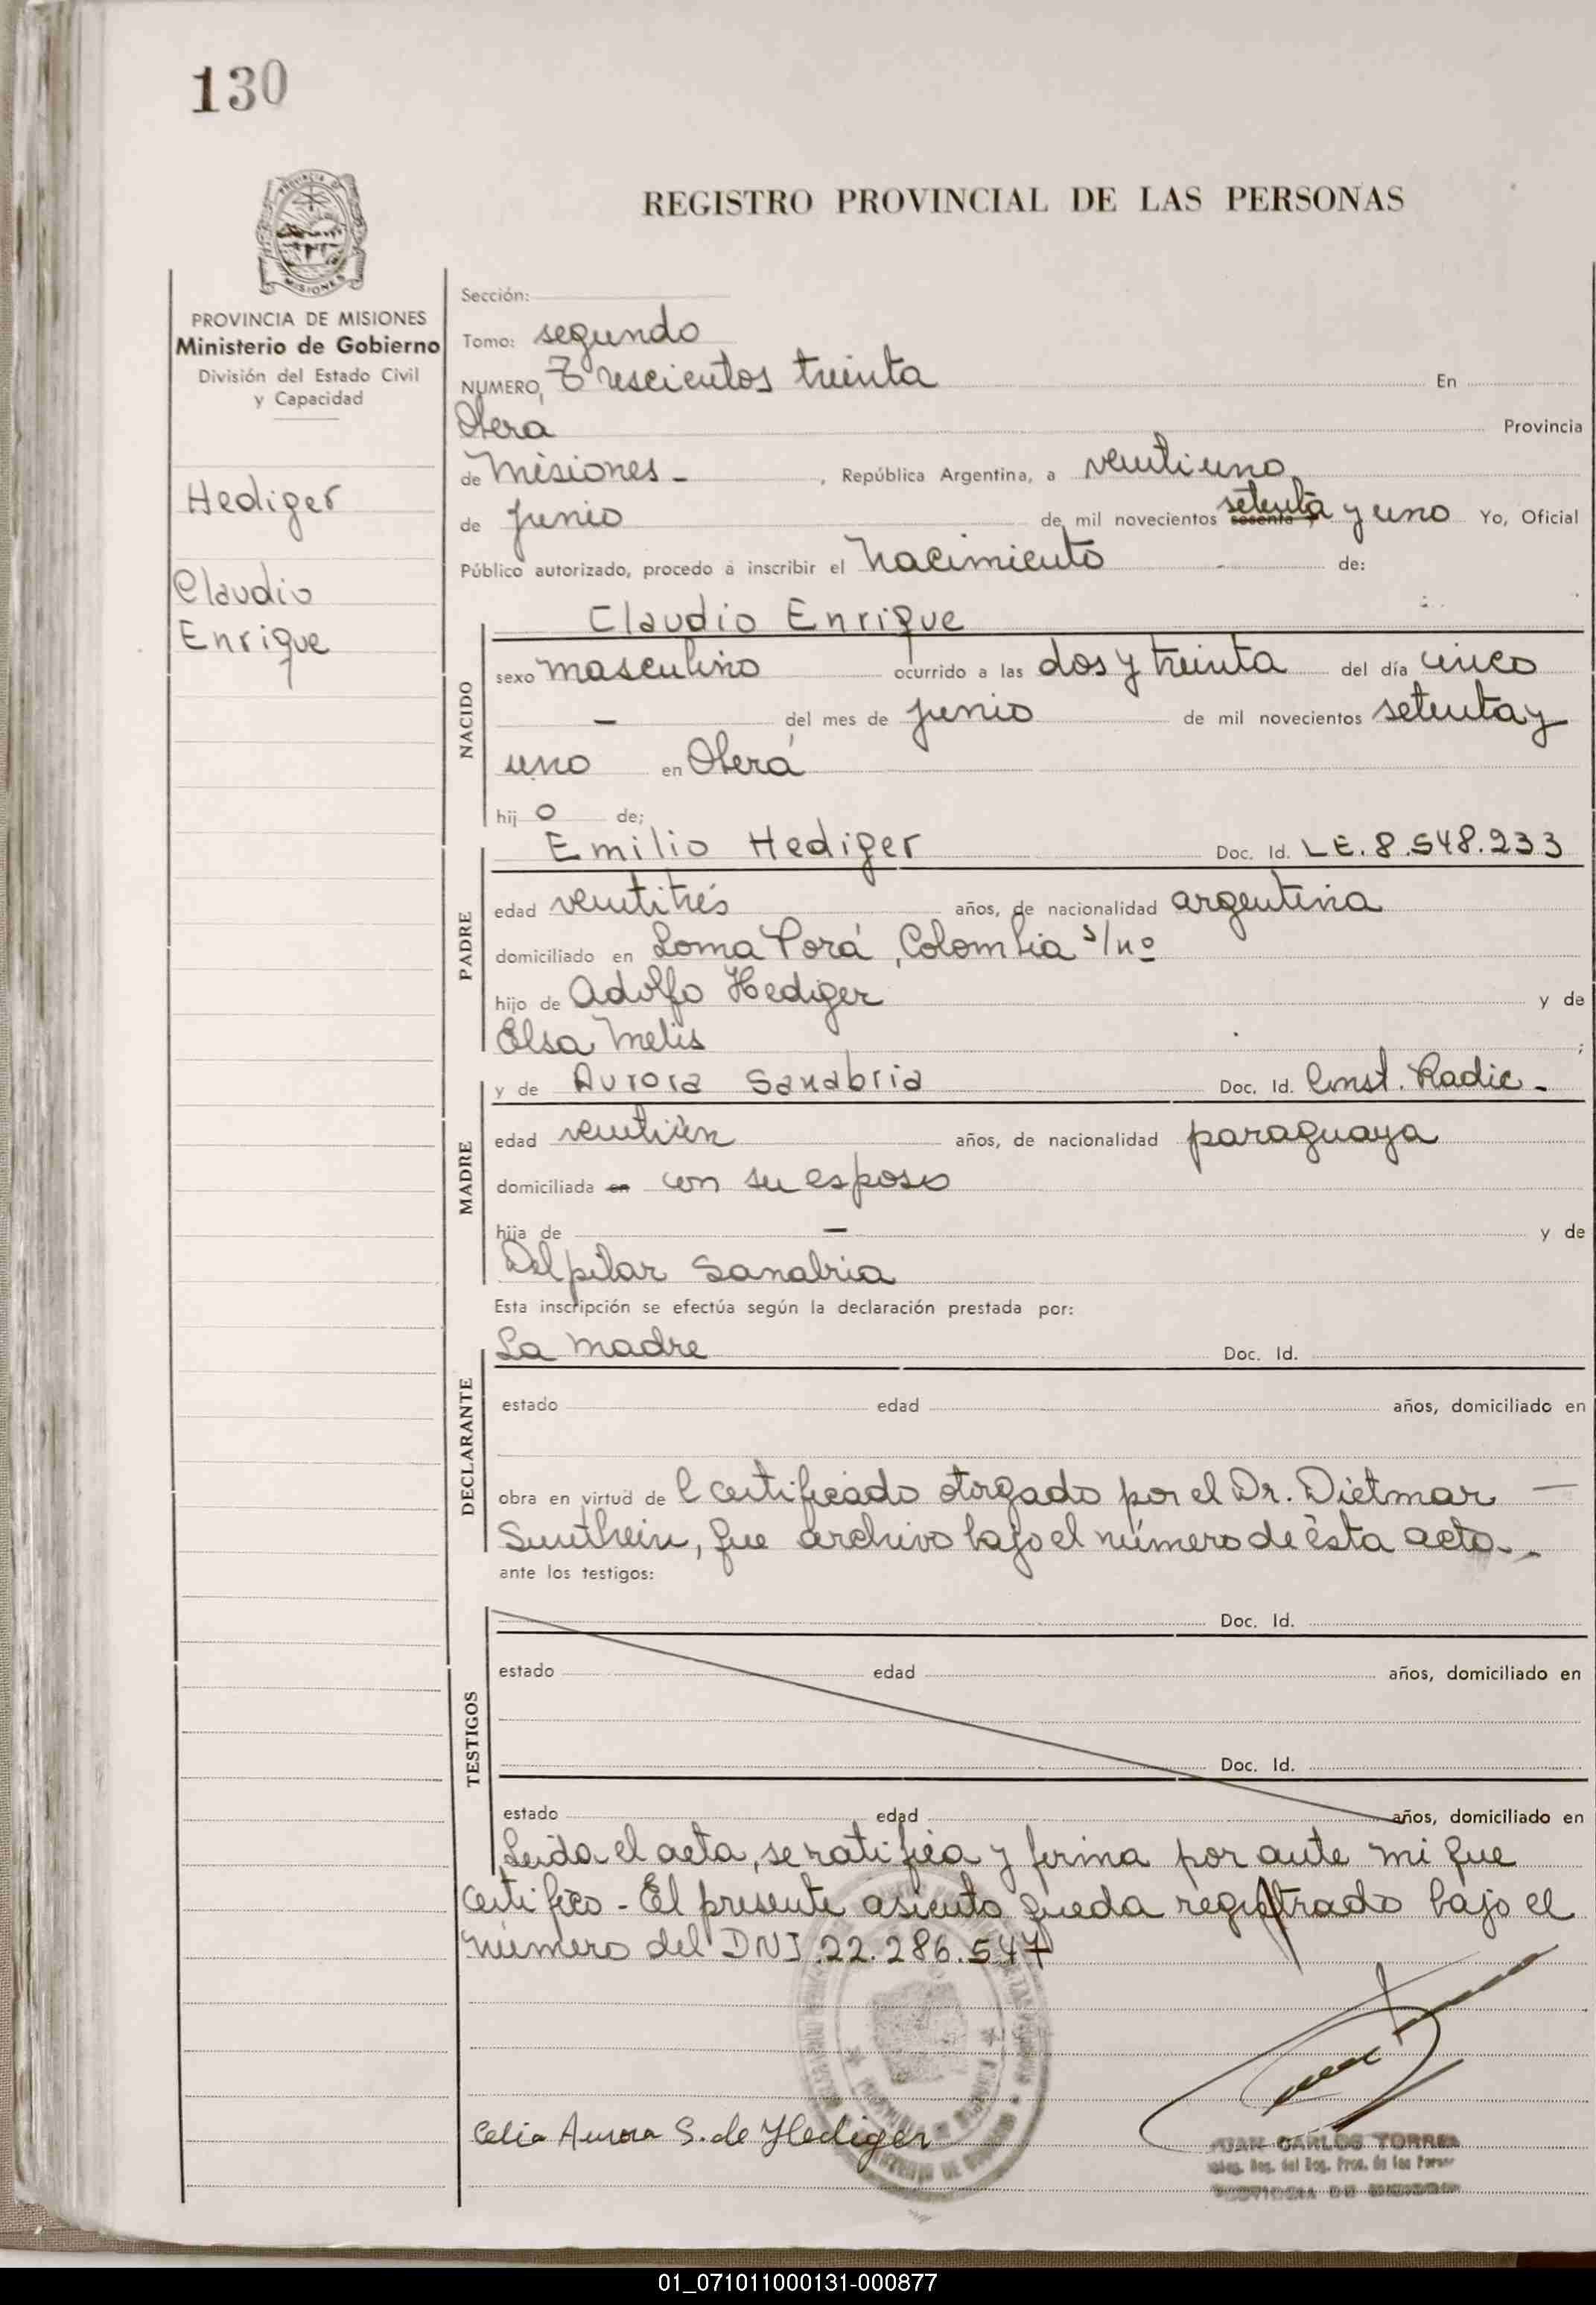 130
REGISTRO PROVINCIAL DE LAS PERSONAS
PROVINCIA DE MISIONES
Ministerio de Gobierno
División del Estado Civil
y Capacidad
Hediger
Claudio
Enrique
Sección:
Tomo: segundo
NUMERO, Trescientos treinta En
Oberá Provincia
de Misiones - , República Argentina, a veintiuno
de junio de mil novecientos sesenta y setenta y uno Yo, Oficial
Público autorizado, procedo a inscribir el Nacimiento de:
NACIDO
Claudio Enrique
sexo masculino ocurrido a las dos y treinta del día cinco
— del mes de junio de mil novecientos setenta y
uno en Oberá
hij o de;
PADRE
Emilio Hediger Doc. Id. L.E. 8.548.233
edad veintitrés años, de nacionalidad argentina
domiciliado en Loma Porá, Colombia s/nº
hijo de Adolfo Hediger y de
Elsa Melis ;
MADRE
y de Aurora Sanabria Doc. Id. Const. Radic.-
edad años, de nacionalidad paraguaya
domiciliada en con su esposo
hija de — y de
Del pilar Sanabria
Esta inscripción se efectúa según la declaración prestada por:
DECLARANTE
La madre Doc. Id.
estado edad años, domiciliado en
obra en virtud de l certificado otorgado por el Dr. Dietmar —
que archivo bajo el número de ésta acta.-
ante los testigos:
TESTIGOS
Doc. Id.
estado edad años, domiciliado en
Doc. Id.
estado edad años, domiciliado en
Leida el acta, se ratifica y firma por ante mi que
certifico - El presente asiento queda registrado bajo el
número del DNI.22.286.547
Celia Aurora S. de Hediger
JUAN CARLOS TORRES
01_071011000131-000877